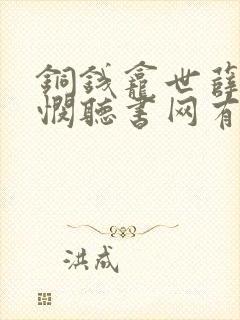 銅錢龕世薛
憫聽書网有
洪成